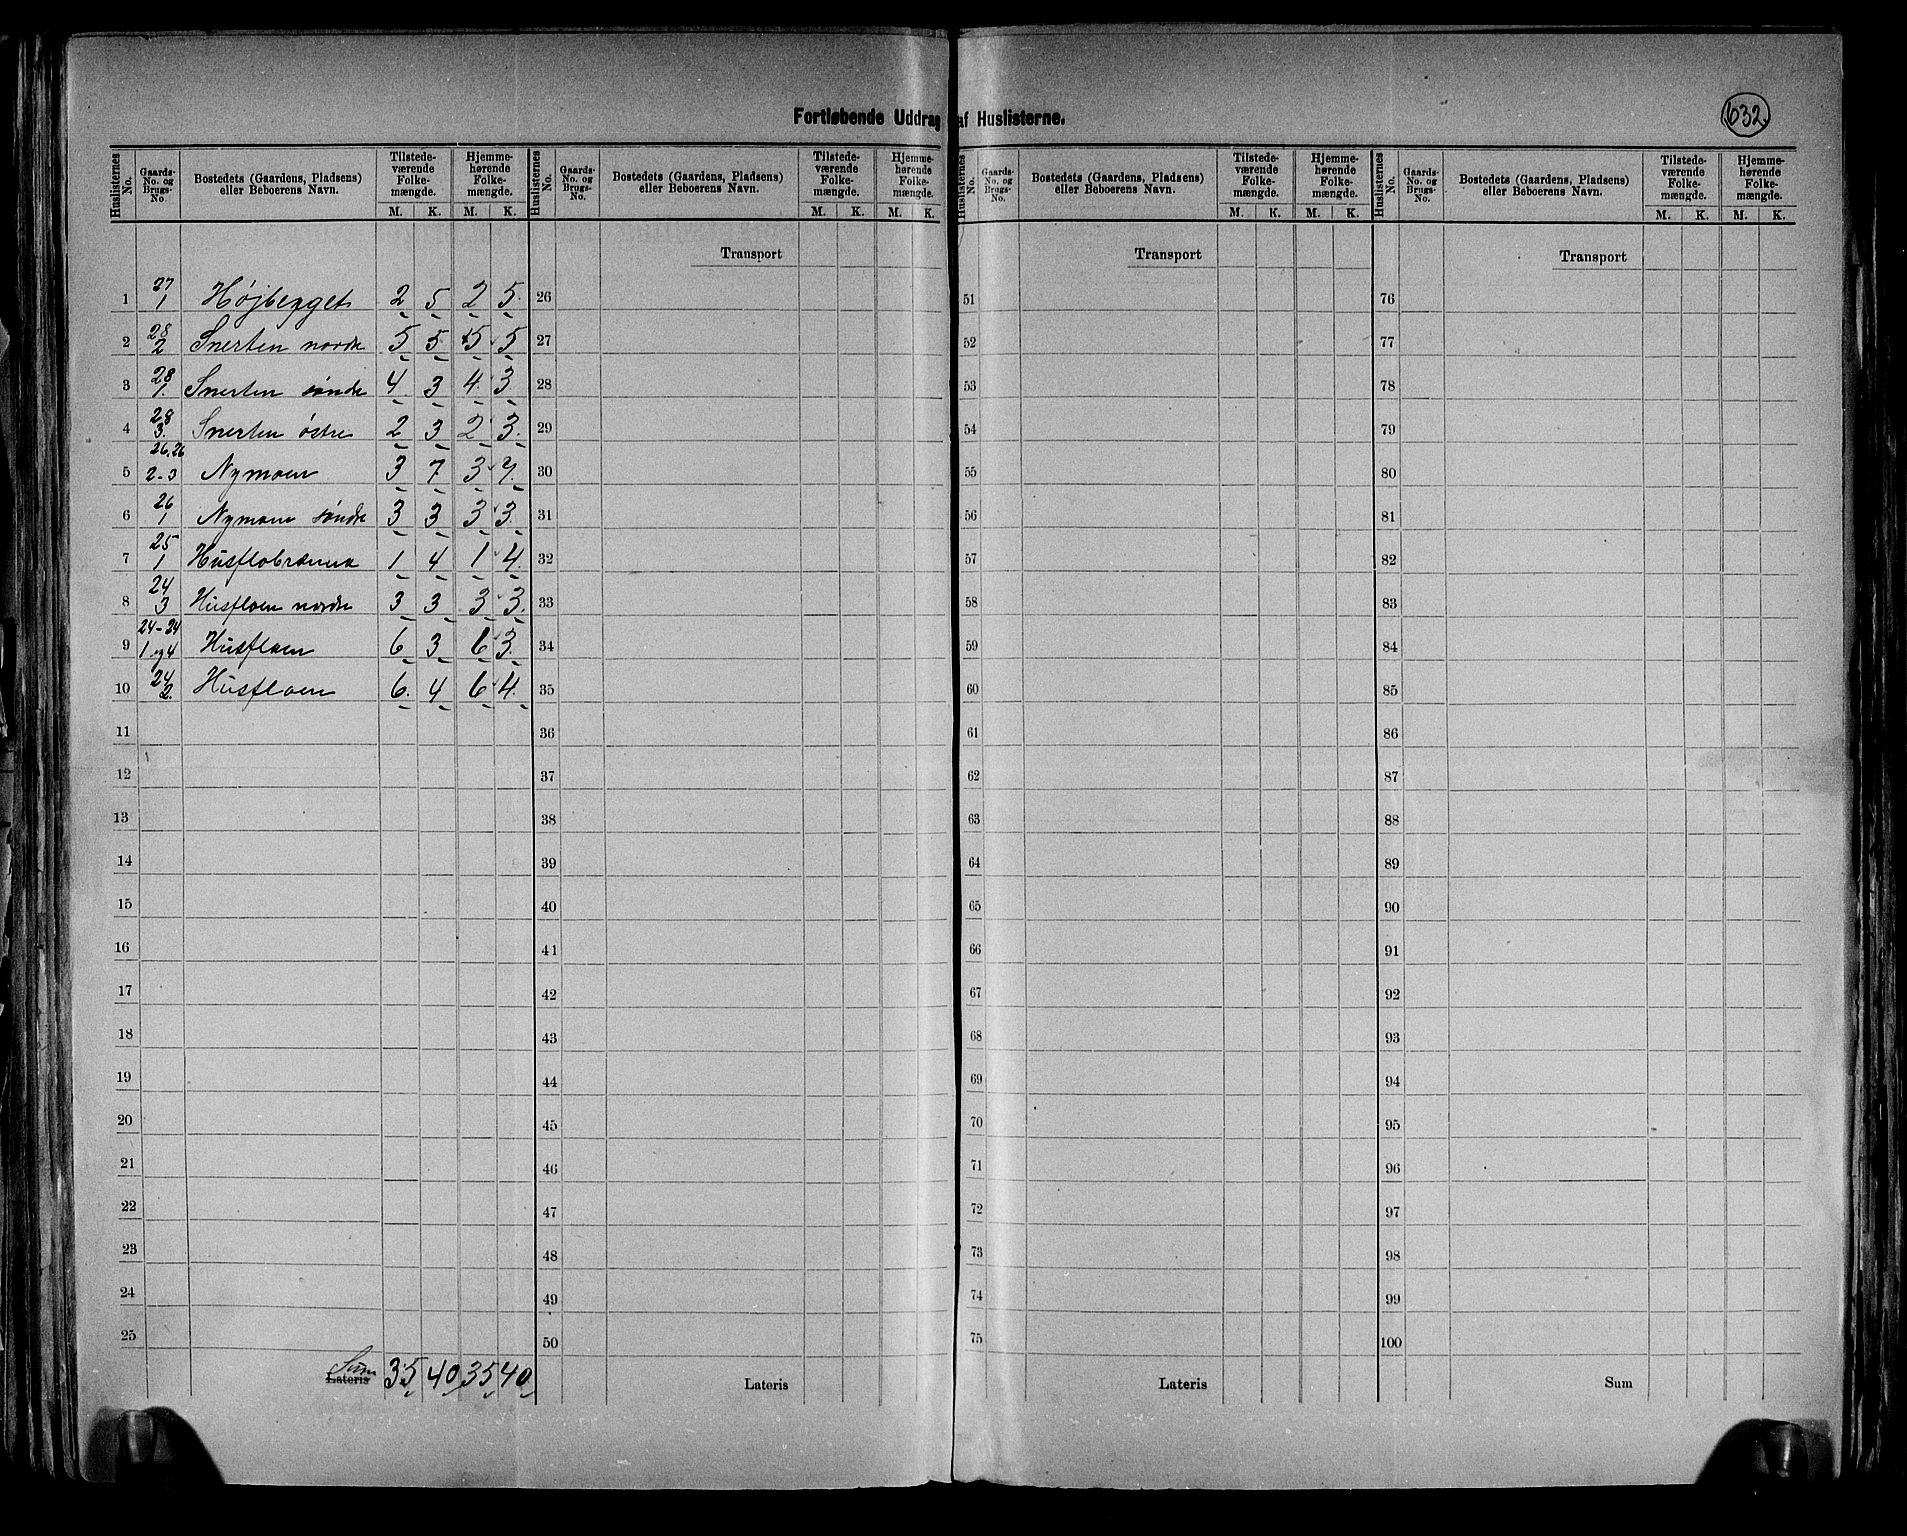 Fortløbende Uddrag af Huslisterne.
632.
Huslisternes No. | Gaards-No. og Brugs-No. | Bostedets (Gaardens, Pladsens) eller Beboerens Navn. | Tilstedeværende Folkemængde. M. K. | Hjemmehørende Folkemængde. M. K.
1 27/1 Højberget 2 5 2 5.
2 28/2 Snerten nordre 5 5 5 5
3 28/1. Snerten søndre 4 3 4. 3
4 28/3. Snerten østre 2 3 2 3.
5 26.26 2-3 Nymoen 3 7 3 7.
6 26/1 Nymoen søndre 3 3 3 3.
7 25/1 Husflobrænna 1 4 1 4.
8 24/3 Husfloen nordre 3 3 3 3.
9 24-24 1 og 4 Husfloen 6 3 6 3.
10 24/2. Husfloen 6. 4 6 4.
11
12
13
14
15
16
17
18
19
20
21
22
23
24
25
Sum Lateris 35 40 35 40
Huslisternes No. | Gaards-No. og Brugs-No. | Bostedets (Gaardens, Pladsens) eller Beboerens Navn. | Tilstedeværende Folkemængde. M. K. | Hjemmehørende Folkemængde. M. K.
Transport
26
27
28
29
30
31
32
33
34
35
36
37
38
39
40
41
42
43
44
45
46
47
48
49
50
Lateris
Huslisternes No. | Gaards-No. og Brugs-No. | Bostedets (Gaardens, Pladsens) eller Beboerens Navn. | Tilstedeværende Folkemængde. M. K. | Hjemmehørende Folkemængde. M. K.
Transport
51
52
53
54
55
56
57
58
59
60
61
62
63
64
65
66
67
68
69
70
71
72
73
74
75
Lateris
Huslisternes No. | Gaards-No. og Brugs-No. | Bostedets (Gaardens, Pladsens) eller Beboerens Navn. | Tilstedeværende Folkemængde. M. K. | Hjemmehørende Folkemængde. M. K.
Transport
76
77
78
79
80
81
82
83
84
85
86
87
88
89
90
91
92
93
94
95
96
97
98
99
100
Sum